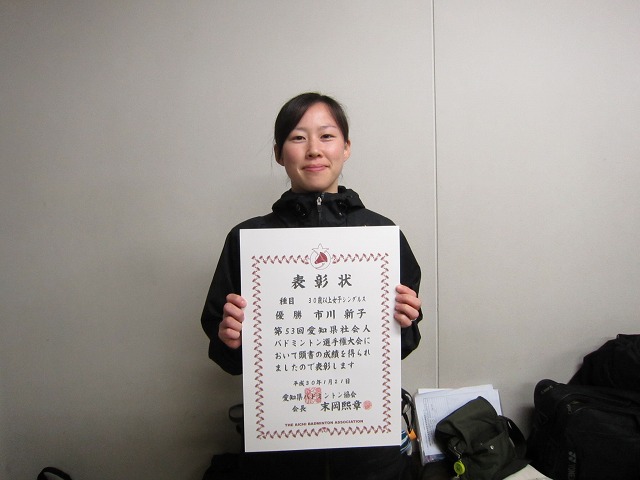 表彰状
種目　30歳以上女子シングルス
優勝　市川 新子
第53回愛知県社会人
バドミントン選手権大会に
おいて頭書の成績を得られ
ましたので表彰します
平成30年1月21日
愛知県バドミントン協会
会長　末岡熙章
THE AICHI BADMINTON ASSOCIATION